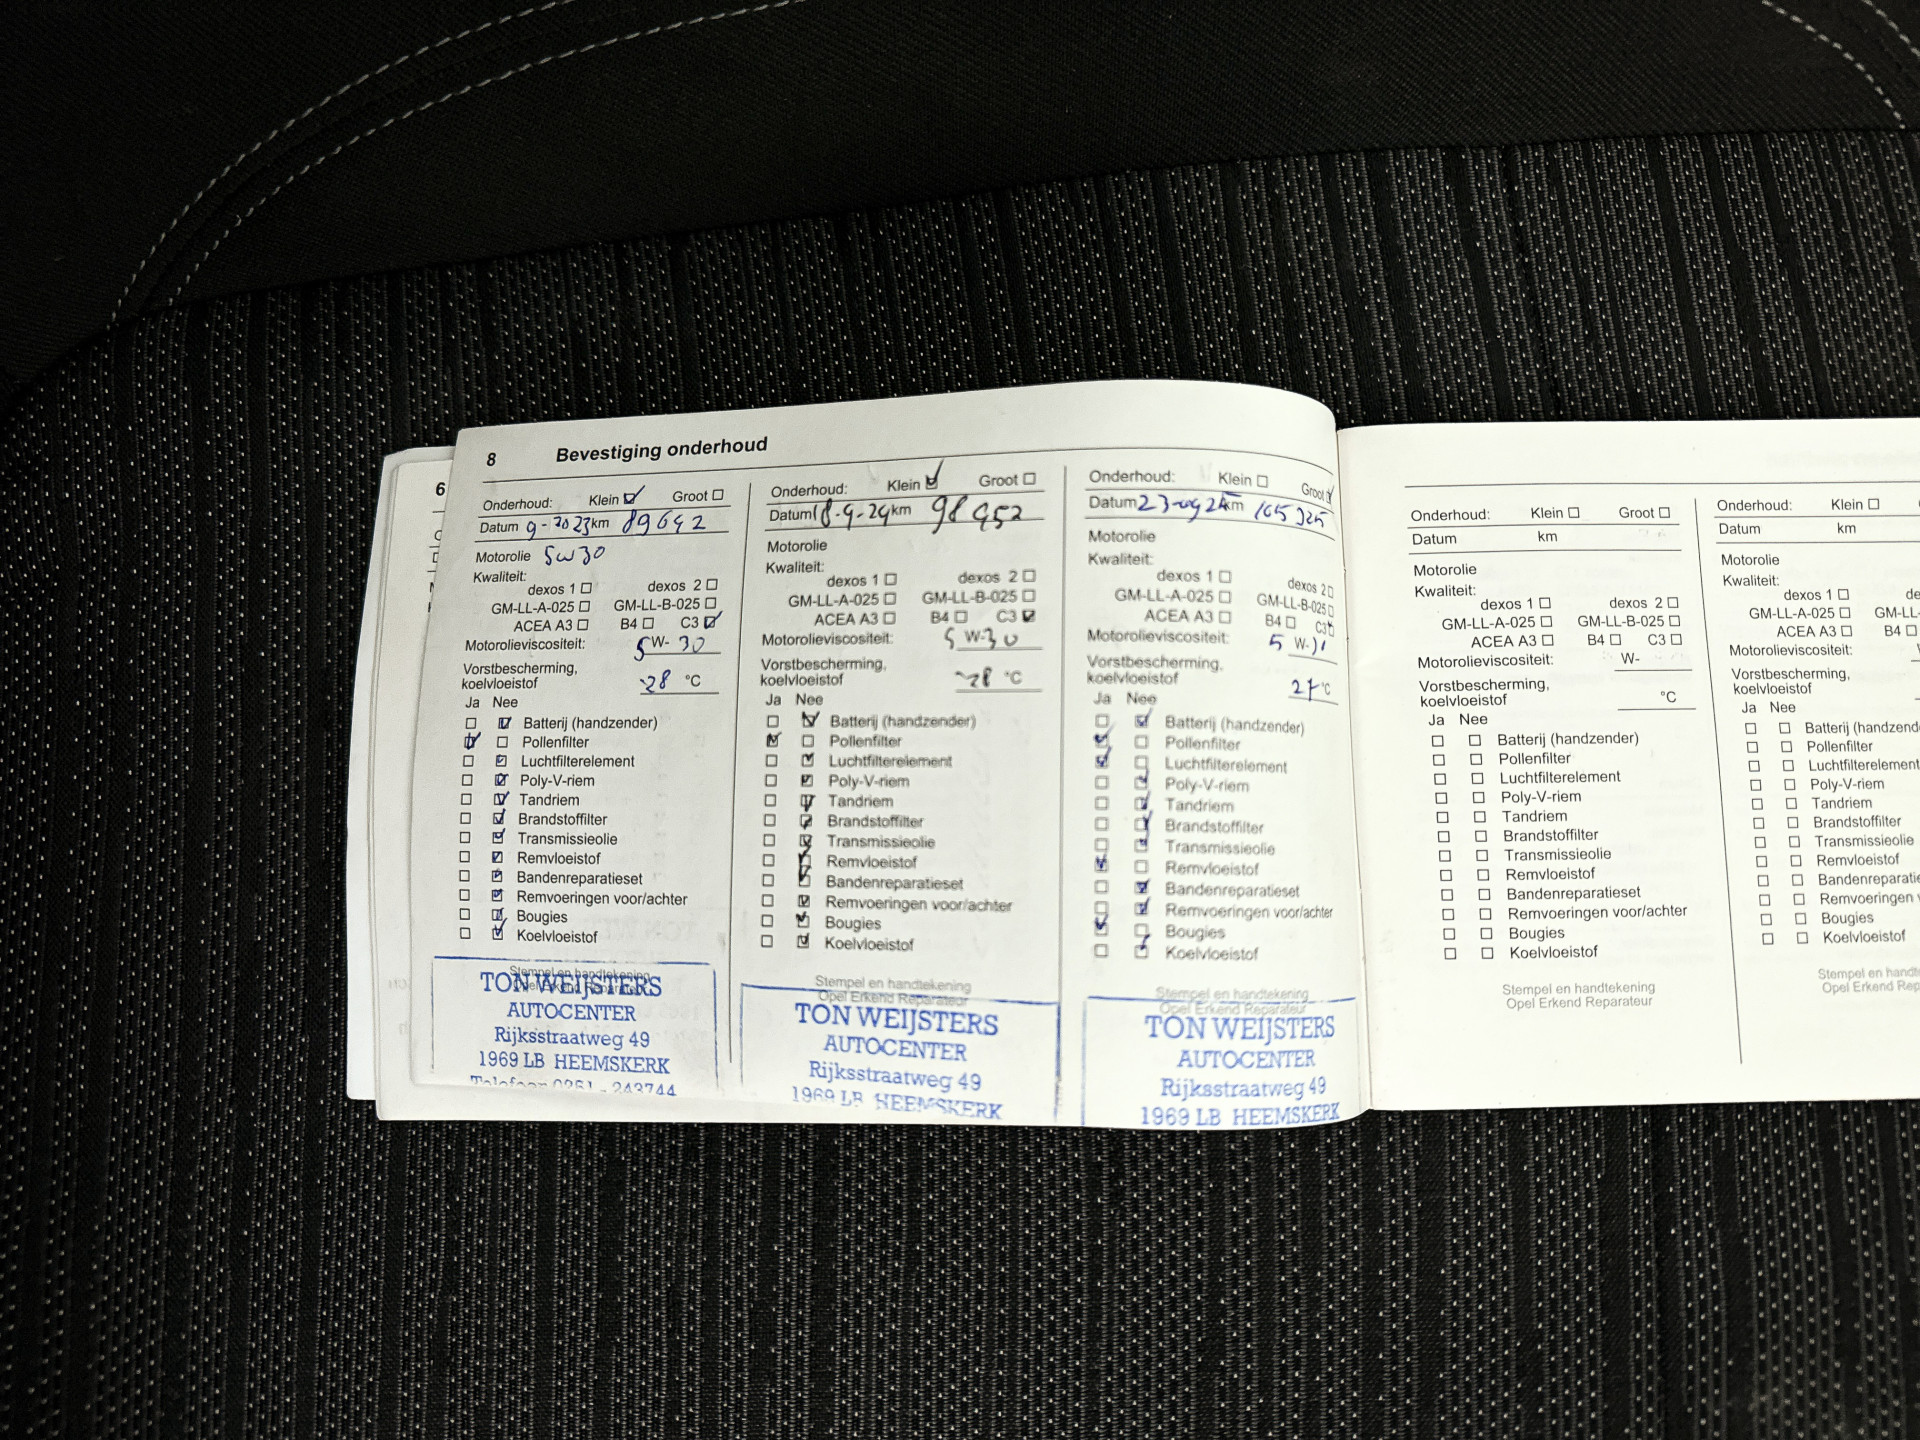 8 Bevestiging onderhoud
Onderhoud: Klein Groot
Datum 9-2023 km 89692
Motorolie 5w30
Kwaliteit:
dexos 1 dexos 2
GM-LL-A-025 GM-LL-B-025
ACEA A3 B4 C3
Motorolieviscositeit: 5 W- 30
Vorstbescherming,
koelvloeistof -28 °C
Ja Nee
Batterij (handzender)
Pollenfilter
Luchtfilterelement
Poly-V-riem
Tandriem
Brandstoffilter
Transmissieolie
Remvloeistof
Bandenreparatieset
Remvoeringen voor/achter
Bougies
Koelvloeistof
Stempel en handtekening
Opel Erkend Reparateur
TON WEIJSTERS
AUTOCENTER
Rijksstraatweg 49
1969 LB HEEMSKERK
Telefoon 0251 - 243744
Onderhoud: Klein Groot
Datum 18-9-24 km 98952
Motorolie
Kwaliteit:
dexos 1 dexos 2
GM-LL-A-025 GM-LL-B-025
ACEA A3 B4 C3
Motorolieviscositeit: 5 W-30
Vorstbescherming,
koelvloeistof -28 °C
Ja Nee
Batterij (handzender)
Pollenfilter
Luchtfilterelement
Poly-V-riem
Tandriem
Brandstoffilter
Transmissieolie
Remvloeistof
Bandenreparatieset
Remvoeringen voor/achter
Bougies
Koelvloeistof
Stempel en handtekening
Opel Erkend Reparateur
TON WEIJSTERS
AUTOCENTER
Rijksstraatweg 49
1969 LB HEEMSKERK
Onderhoud: Klein Groot
Datum km
Motorolie
Kwaliteit:
dexos 1 dexos 2
GM-LL-A-025 GM-LL-B-025
ACEA A3 B4 C3
Motorolieviscositeit: 5 W-
Vorstbescherming,
koelvloeistof 27 °C
Ja Nee
Batterij (handzender)
Pollenfilter
Luchtfilterelement
Poly-V-riem
Tandriem
Brandstoffilter
Transmissieolie
Remvloeistof
Bandenreparatieset
Remvoeringen voor/achter
Bougies
Koelvloeistof
Stempel en handtekening
Opel Erkend Reparateur
TON WEIJSTERS
AUTOCENTER
Rijksstraatweg 49
1969 LB HEEMSKERK
Onderhoud: Klein Groot
Datum km
Motorolie
Kwaliteit:
dexos 1 dexos 2
GM-LL-A-025 GM-LL-B-025
ACEA A3 B4 C3
Motorolieviscositeit: W-
Vorstbescherming,
koelvloeistof °C
Ja Nee
Batterij (handzender)
Pollenfilter
Luchtfilterelement
Poly-V-riem
Tandriem
Brandstoffilter
Transmissieolie
Remvloeistof
Bandenreparatieset
Remvoeringen voor/achter
Bougies
Koelvloeistof
Stempel en handtekening
Opel Erkend Reparateur
Onderhoud: Klein
Datum km
Motorolie
Kwaliteit:
dexos 1 de
GM-LL-A-025 GM-LL-
ACEA A3 B4
Motorolieviscositeit:
Vorstbescherming,
koelvloeistof
Ja Nee
Batterij (handzend
Pollenfilter
Luchtfilterelement
Poly-V-riem
Tandriem
Brandstoffilter
Transmissieolie
Remvloeistof
Bandenreparatie
Remvoeringen v
Bougies
Koelvloeistof
Stempel en handt
Opel Erkend Rep
6